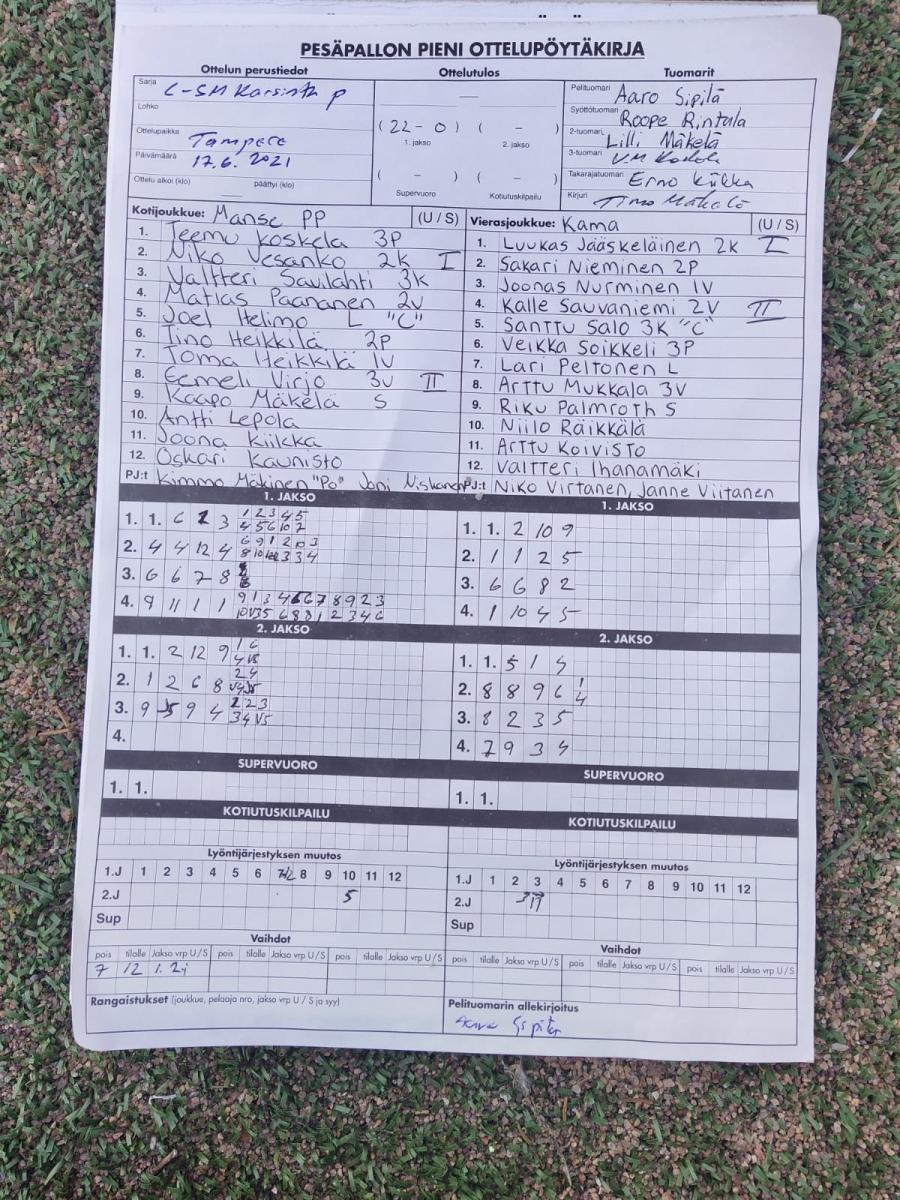 PESÄPALLON PIENI OTTELUPÖYTÄKIRJA
Ottelun perustiedot Ottelutulos Tuomarit
Sarja C-SM Karsinta P
Lohko
Ottelupaikka Tampere
Päivämäärä 17.6. 2021
Ottelu alkoi (klo) päättyi (klo)
—
( 22 - 0 ) ( - )
1. jakso 2. jakso
( - ) ( - )
Supervuoro Kotiutuskilpailu
Pelituomari Aaro Sipilä
Syöttötuomari Roope Rintala
2-tuomari Lilli Mäkelä
3-tuomari V.M
Takarajatuomari Erno Kiikka
Kirjuri Timo Mäkelä
Kotijoukkue: Manse PP (U / S)
1. Teemu Koskela 3P
2. Niko Vesanko 2K I
3. Valtteri Savilahti 3K
4. Matias Paananen 2V
5. Joel Helimo L "C"
6. Iino Heikkilä 2P
7. Toma Heikkilä 1V
8. Eemeli Virjo 3V II
9. Kaapo Mäkelä S
10. Antti Lepola
11. Joona Kiikka
12. Oskari Kaunisto
PJ:t Kimmo Mäkinen "Po" Joni Niskanen
Vierasjoukkue: Kama (U / S)
1. Luukas Jääskeläinen 2K I
2. Sakari Nieminen 2P
3. Joonas Nurminen 1V
4. Kalle Sauvaniemi 2V II
5. Santtu Salo 3K "C"
6. Veikka Soikkeli 3P
7. Lari Peltonen L
8. Arttu Mukkala 3V
9. Riku Palmroth S
10. Niilo Räikkälä
11. Arttu Koivisto
12. Valtteri Ihanamäki
PJ:t Niko Virtanen, Janne Viitanen
1. JAKSO
1. 1. 6 3 1 2 3 4 5
4 5 6 10 7
2. 4 4 12 4 6 9 1 2 10 3
8 10 3 3 4
3. 6 6 7 8
4. 9 11 1 1 9 1 3 4 6 6 7 8 9 2 3
10 V3 5 6 8 8 1 2 3 4 6
2. JAKSO
1. 1. 2 12 9 1 6
4 V8
2. 1 2 6 8 2 4
3. 9 5 9 4 2 2 3
3 4 V5
4.
SUPERVUORO
1. 1.
KOTIUTUSKILPAILU
Lyöntijärjestyksen muutos
1.J 1 2 3 4 5 6 8 9 10 11 12
2.J 5
Sup
Vaihdot
pois tilalle Jakso vrp U / S pois tilalle Jakso vrp U / S pois tilalle Jakso vrp U / S
7 12 1. 2j
Rangaistukset (joukkue, pelaaja nro, jakso vrp U / S ja syy)
1. JAKSO
1. 1. 2 10 9
2. 1 1 2 5
3. 6 6 8 2
4. 1 10 4 5
2. JAKSO
1. 1. 5 1 4
2. 8 8 9 6 1
4
3. 8 2 3 5
4. 7 9 3 4
SUPERVUORO
1. 1.
KOTIUTUSKILPAILU
Lyöntijärjestyksen muutos
1.J 1 2 3 4 5 6 7 8 9 10 11 12
2.J
Sup
Vaihdot
pois tilalle Jakso vrp U / S pois tilalle Jakso vrp U / S pois tilalle Jakso vrp U / S
Pelituomarin allekirjoitus
Aaro Sipilä